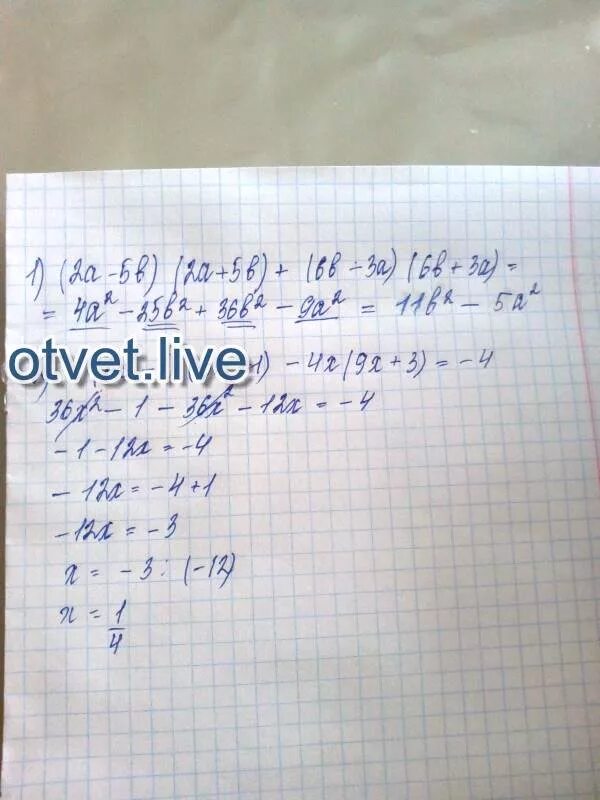 1) (2a - 5b) (2a + 5b) + (6b - 3a) (6b + 3a) =
= 4a² - 25b² + 36b² - 9a² = 11b² - 5a²
otvet.live
1) - 4x (9x + 3) = -4
36x² - 1 - 36x² - 12x = -4
-1 - 12x = -4
- 12x = -4 + 1
-12x = -3
x = -3 : (-12)
x = 1/4